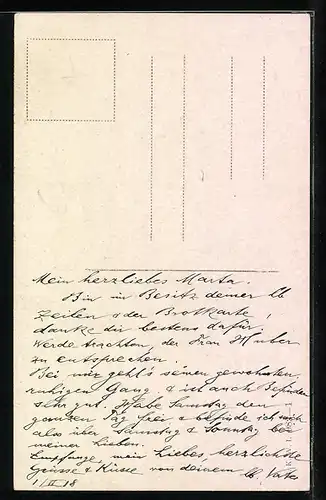 Mein herzliebes Marta.
Bin in Besitz deiner lb
Zeilen & der Brotkarte,
danke dir bestens dafür.
Werde trachten, der Frau Huber
zu entsprechen.
Bei mir geht's seinen gewohnten,
ruhigen Gang & ist auch Befinden
sehr gut. Habe Samstag den
ganzen Tag frei & befinde ich mich
also über Samstag & Sonntag bei
meiner Lieben.
Empfange, mein Liebes, herzlichste
Grüsse & Küsse von deinem lb. Vater
1/II 18